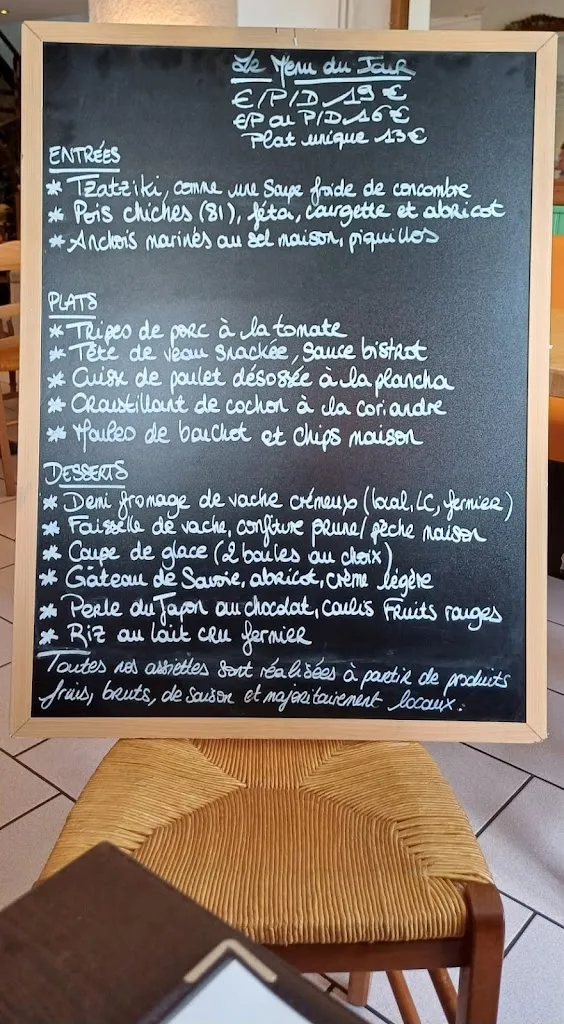 Le Menu du Jour
E/P/D 19 €
EP ou P/D 16 €
Plat unique 13 €
ENTRÉES
* Tzatziki, comme une Soupe froide de concombre
* Pois chiches (81), féta, courgette et abricot
* Anchois marinés au sel maison, piquillos
PLATS
* Tripes de porc à la tomate
* Tête de veau snackée, sauce bistrot
* Cuisse de poulet désossée à la plancha
* Croustillant de cochon à la coriandre
* Moules de bouchot et chips maison
DESSERTS
* Demi fromage de vache crémeux (local, LC, fermier)
* Faisselle de vache, confiture prune/pêche maison
* Coupe de glace (2 boules au choix)
* Gâteau de Savoie, abricot, crème légère
* Perle du Japon au chocolat, coulis Fruits rouges
* Riz au lait cru fermier
Toutes nos assiettes sont réalisées à partir de produits
frais, bruts, de saison et majoritairement locaux.